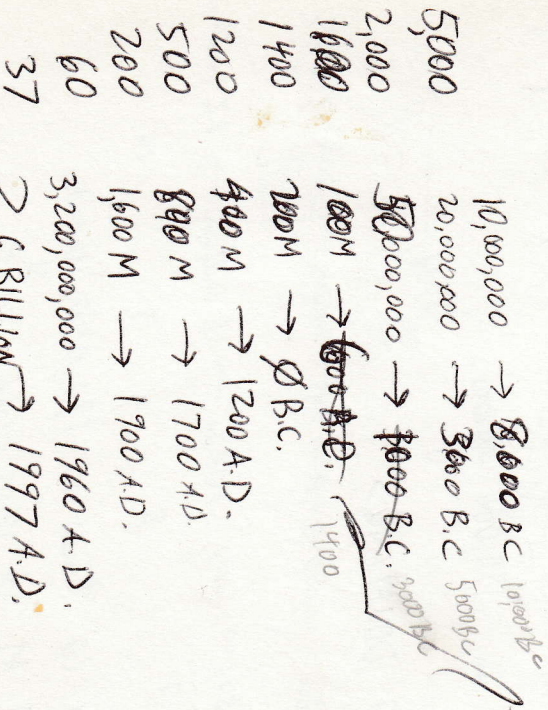 10,000,000 → 8,000 BC 10,000 BC
5,000 20,000,000 → 3000 B.C 5000 BC
2,000 50,000,000 → 1000 B.C. 3000 BC
1600 100M → 1400
1400 200M → Ø B.C.
1200 400M → 1200 A.D.
500 800M → 1700 A.D.
200 1,600M → 1900 A.D.
60 3,200,000,000 → 1960 A.D.
37 6 BILLION → 1997 A.D.